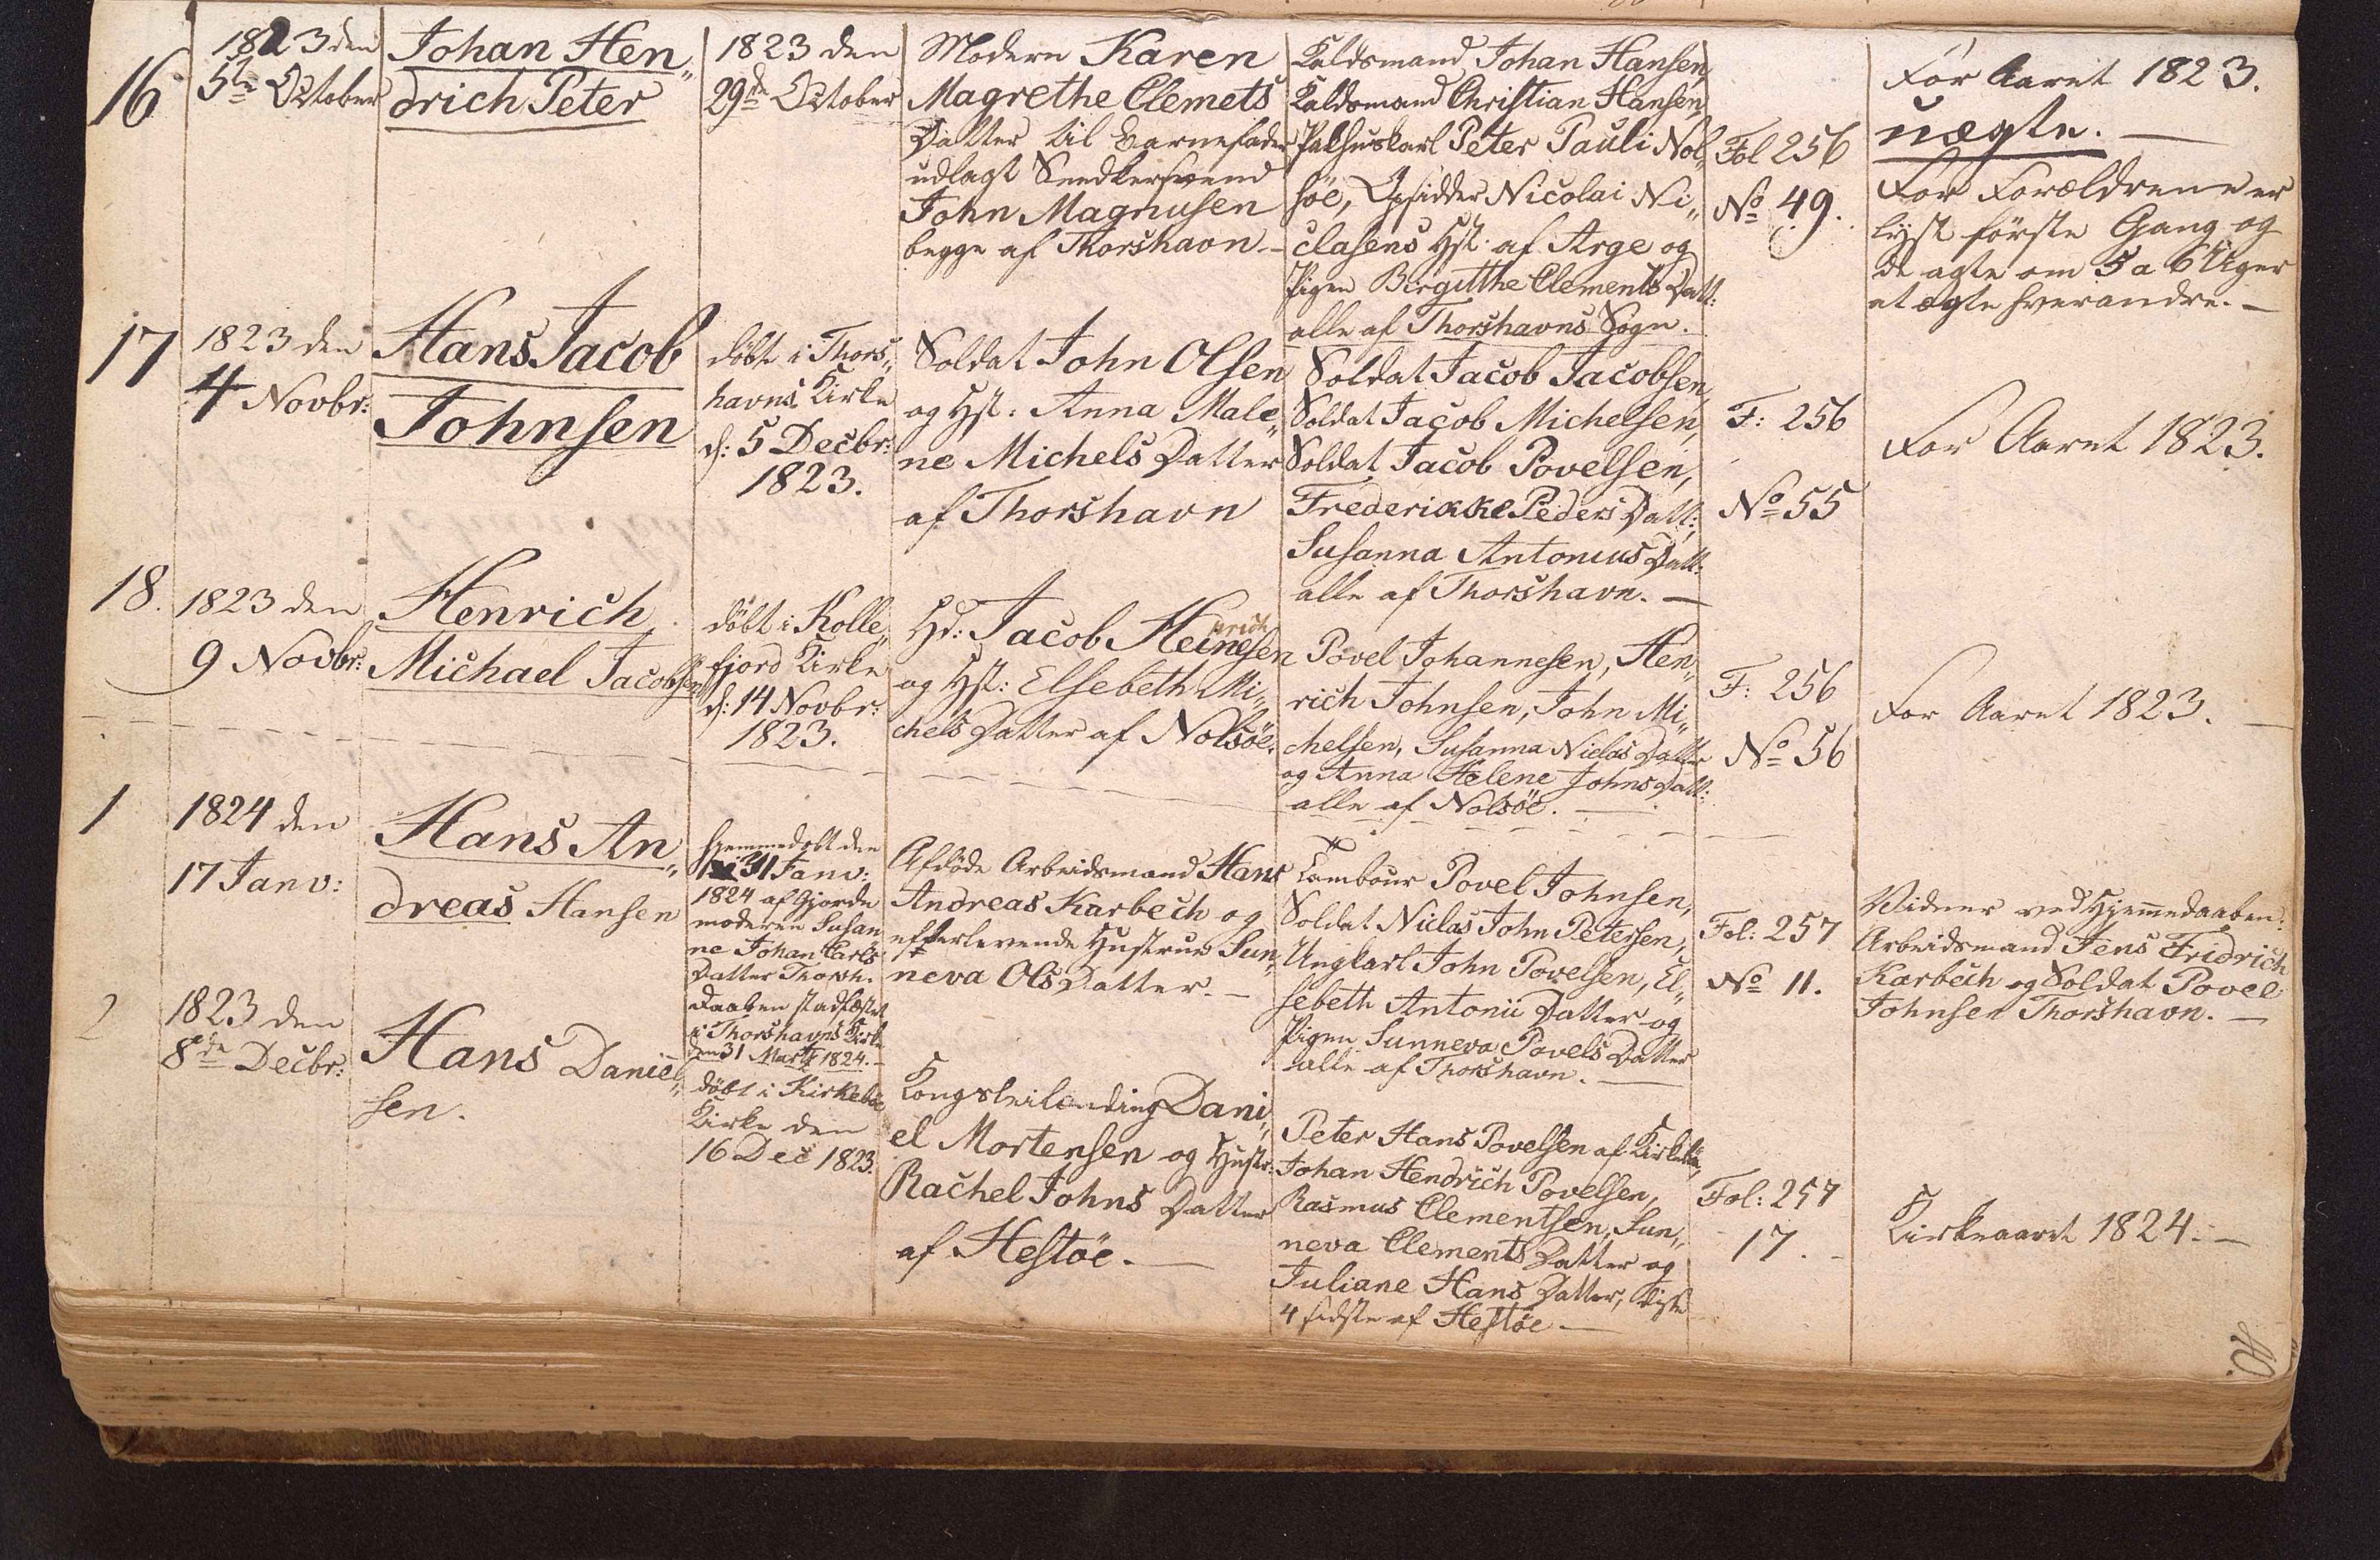 16
1823 den
5te October
Johan Hen„
drich Peter
1823 den
29de October
Modern Karen
Magrethe Clemets
Datter til Barnefader
udlagt Snedkersvend
John Magnusen
begge af Thorshavn.
Kaldsmand Johan Hansen,
Kaldsmand Christian Hansen,
Pakhuskarl Peter Pauli Nol„
söe, Opsidder Nicolai Ni„
clasens Hst. af Arge og
Pigen Birgitthe Clements Datt:
alle af Thorshavns Sogn.
Fol 256
No 49.
For Aaret 1823.
uægte.
For Forældrene er
lyst förste Gang og
de agte om 5 a 6 Uger
at ægte hverandre.
17
1823 den
4 Novbr:
Hans Jacob
Johnsen
döbt i Thors„
havns Kirke
d: 5 Decbr:
1823.
Soldat John Olsen
og Hst: Anna Male„
ne Michels Datter
af Thorshavn
Soldat Jacob Jacobsen,
Soldat Jacob Michelsen,
Soldat Jacob Povelsen,
Frederikke Peders Datt:,
Susanna Antonius Datt:
alle af Thorshavn.
F: 256
No 55
For Aaret 1823.
18.
1823 den
9 Novbr:
Henrich
Michael Jacobsen
döbt i Kolle„
fjord Kirke
d: 14 Novbr:
1823.
nrich
Hd: Jacob Heinesen
og Hst: Elsebeth Mi„
chels Datter af Nolsöe.
Povel Johannesen, Hen„
rich Johnsen, John Mi„
chelsen, Susanna Niclas Datter
og Anna Helene Johns Datt:
alle af Nolsöe.
F: 256
No 56
For Aaret 1823.
1
1824 den
17 Janv:
Hans An„
dreas Hansen
hjemmedobt den
31 Janv:
1824 af Gjorde
moderen Susan
ne Johan Carls
Datter Thorsh.
Daaben stadfæstet
i Thorshavns Kirke
den 31 Marts 1824.
Afdöde Arbeidsmand Hans
Andreas Karbech og
efterlevende Hustrue Sun„
neva Ols Datter.
Tambour Povel Johnsen,
Soldat Niclas John Petersen,
Ungkarl John Povelsen, El„
sebeth Antonii Datter og
Pigen Sunneva Povels Datter
alle af Thorshavn.
Fol: 257
No 11.
Vidner ved Hjemmedaaben:
Arbeidsmand Jens Fridrich
Karbech og Soldat Povel
Johnsen Thorshavn.
2
1823 den
8de Decbr:
Hans Daniel„
sen.
döbt i Kirkeböe
Kirke den
16 Dec 1823.
Kongsleilænding Dani„
el Mortensen og Hustr:
Rachel Johns Datter
af Hestöe.
Peter Hans Povelsen af Kirkeböe,
Johan Hendrich Povelsen,
Rasmus Clementsen, Sun„
neva Clements Datter og
Juliane Hans Datter, disse
4 sidste af Hestöe
Fol: 257
17.
Kirkeaaret 1824.
40.